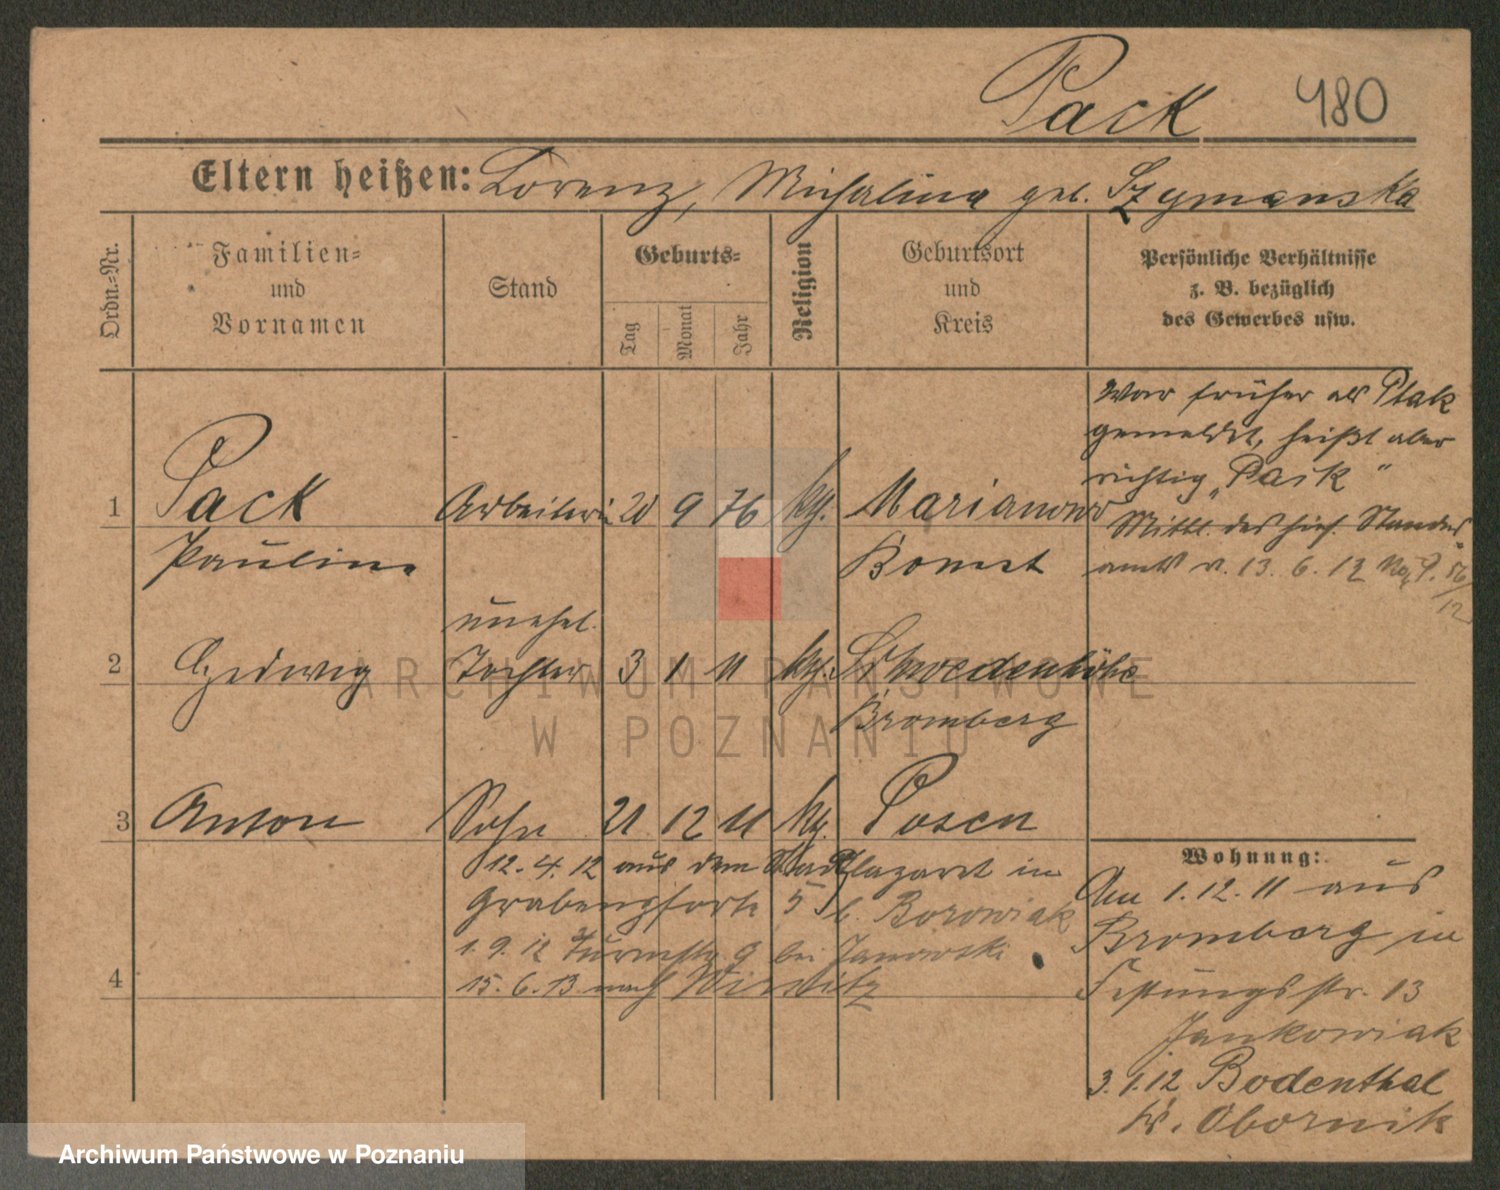 Pack 480
Eltern heißen: Lorenz, Michalina geb. Szymanska
Ordn.-Nr.
Familien-
und
Vornamen
Stand
Geburts-
Tag
Monat
Jahr
Religion
Geburtsort
und
Kreis
Persönliche Verhältnisse
z. B. bezüglich
des Gewerbes usw.
War früher als Ptak
gemeldet, heißt aber
richtig "Pack"
Mittl. des hies. Standes-
amts v. 13. 6. 12
1 Pack Arbeiterin 20 9 76 kg. Marianowo
Pauline Bomst
unehel.
2 Hedwig Tochter 3 1 11 kg. Schwedenhöhe
Bromberg
3 Anton Sohn 21 12 11 kg. Posen
12. 4. 12 aus dem Stadtlazaret in
Grabenpforte 5 b. Borowiak
1. 9. 12 Turmstr. 9 bei Janowski
4 15. 6. 13 nach
Wohnung:
Am 1. 12. 11 aus
Bromberg in
Festungsstr. 13
Jankowiak
3. 1. 12 Bodenthal
Kr. Obornik
ARCHIWUM PAŃSTWOWE
W POZNANIU
Archiwum Państwowe w Poznaniu